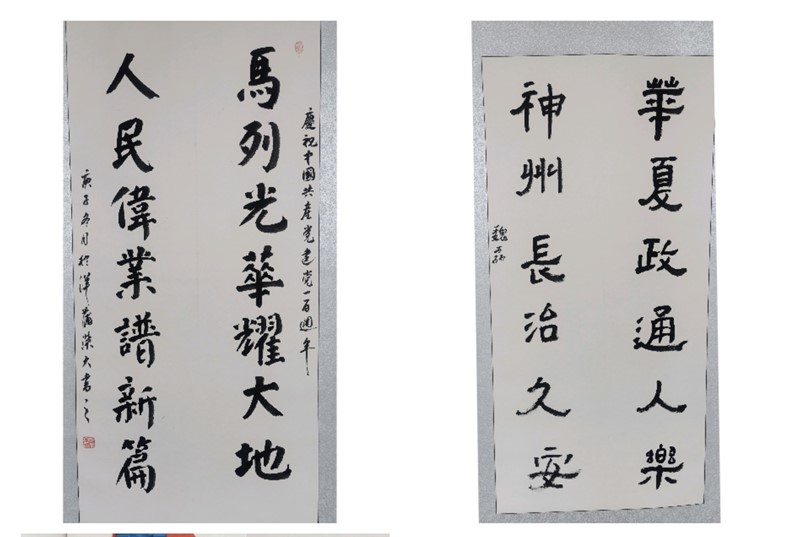 慶祝中國共產党建党一百週年
馬列光華耀大地
人民偉業譜新篇
庚子冬月於洋蒲榮大書之
華夏政通人樂
神州長治久安
魏